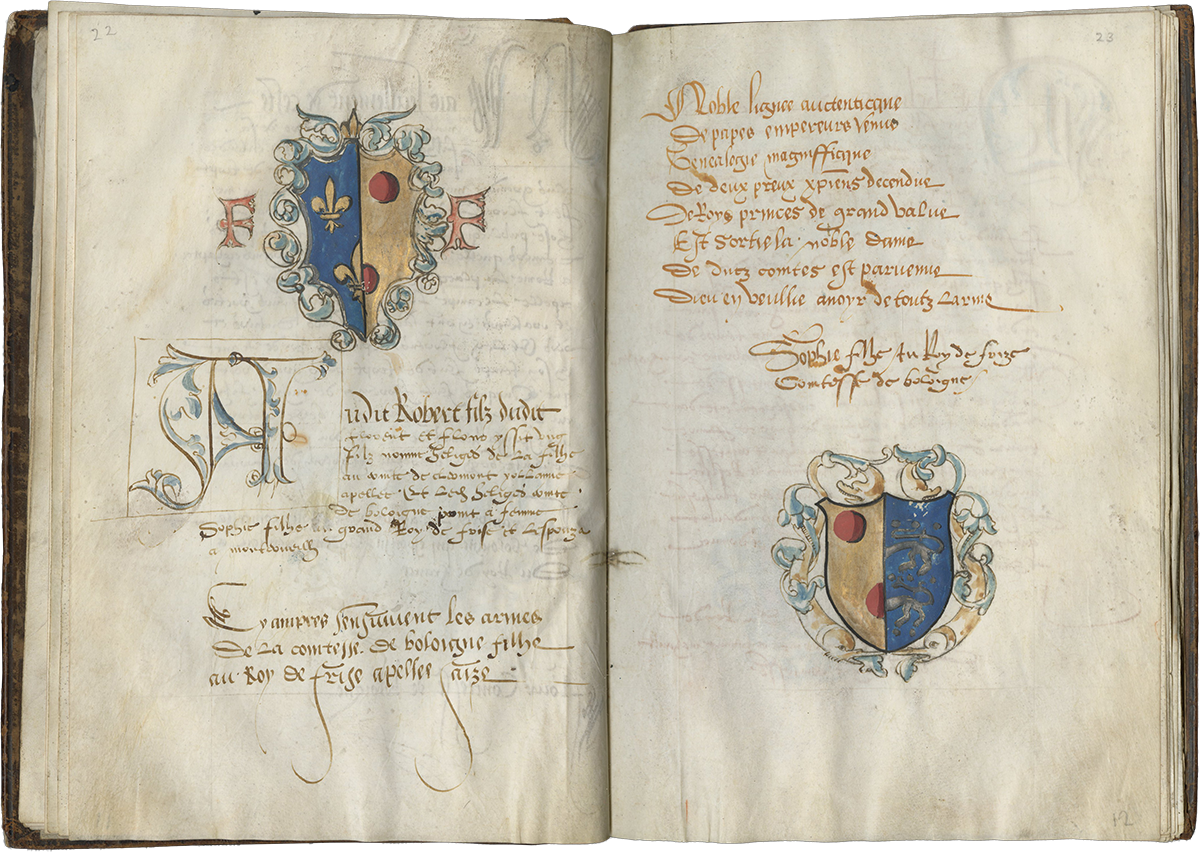 22
F F
Audit Robert filz dudit
florent et flons yssit ung
filz nomme Heliges de la filhe
au comte de clermont yollanne
apellet Et ledit Heliges comte
de boloigne print a femme
Sophie filhe au grand Roy de frise et lespouza
a
Cy ampres sensuivent les armes
De la comtesse De boloigne filhe
au Roy de frize apelles
23
Noble lignee auctenticque
De papes empereurs venus
Genealogie magnifficque
De deux preux xpiens decendue
De Roys princes de grand value
Est sortie la noble dame
De ducz comtes est parvenue
Dieu en veullie avoyr de toutz larme
Sophie filhe du Roy de frize
Comtesse de boloigne
12